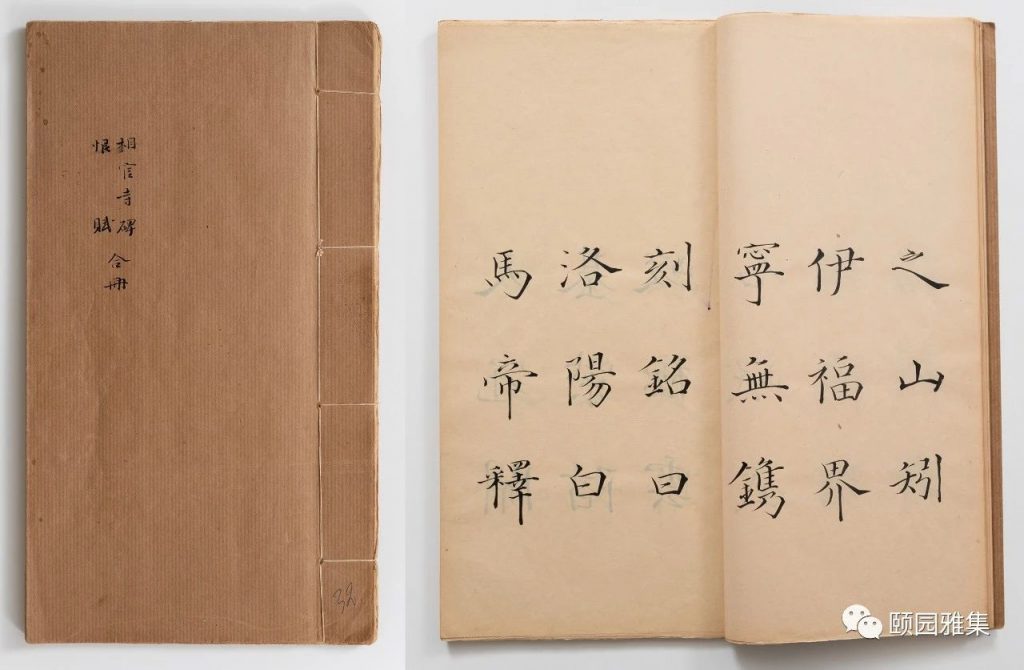 相官寺碑
恨賦
合冊
之山矧
伊福界
寧無鐫
刻銘曰
洛陽白
馬帝釋
颐园雅集